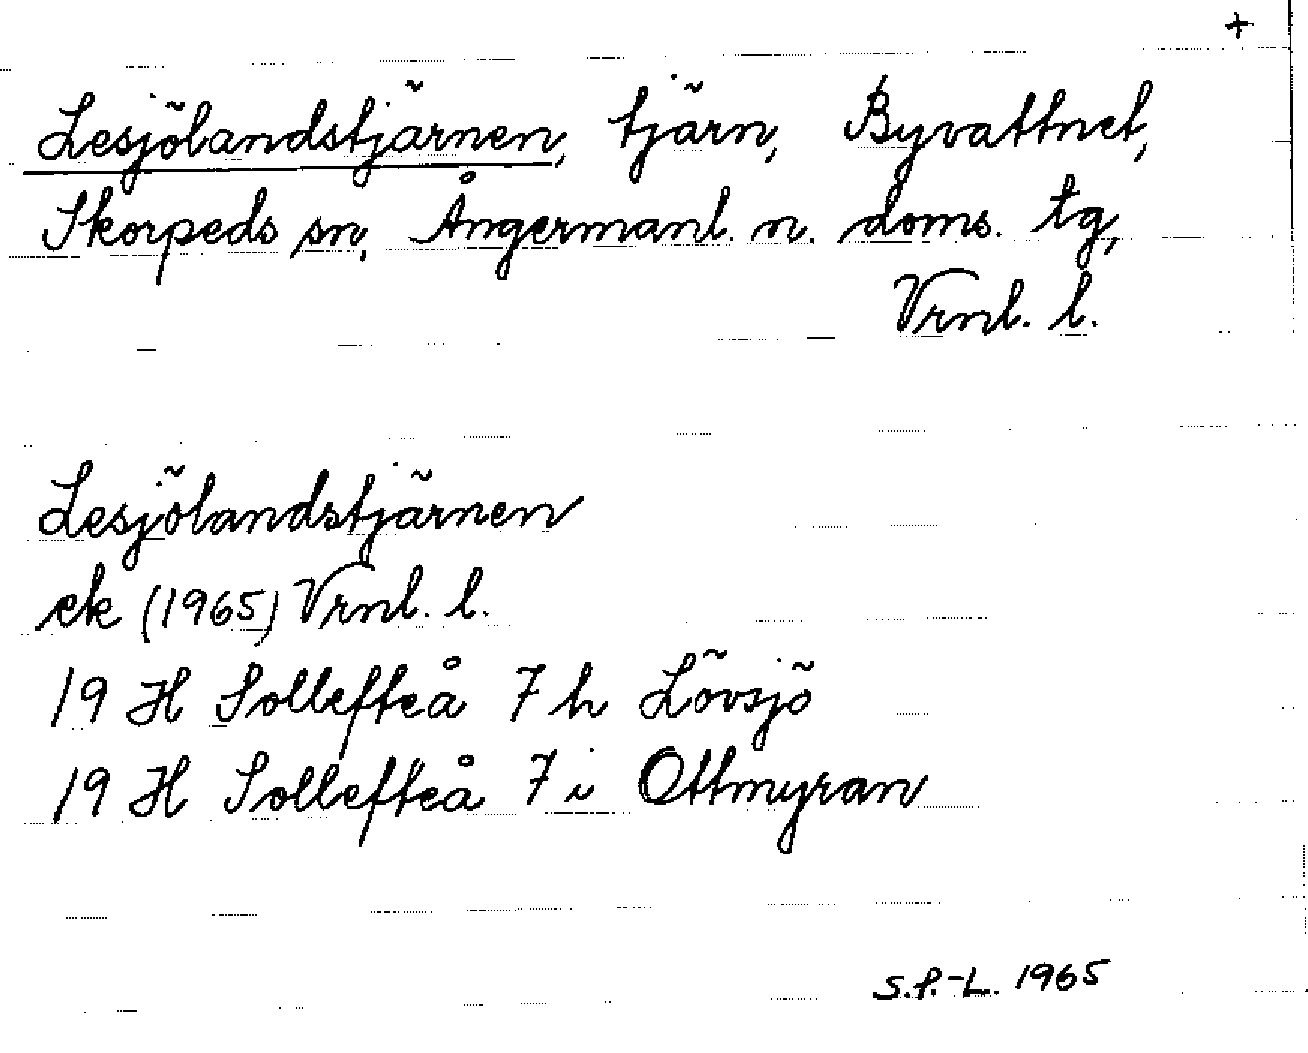 +
Lesjölandstjärnen, tjärn, Byvattnet,
Skorpeds sn, Ångermanl. n. doms. tg,
Vrnl. l.
Lesjölandstjärnen
ek (1965) Vrnl. l.
19 H Sollefteå 7 h Lövsjö
19 H Sollefteå 7 i Ottmyran
S.P.-L. 1965